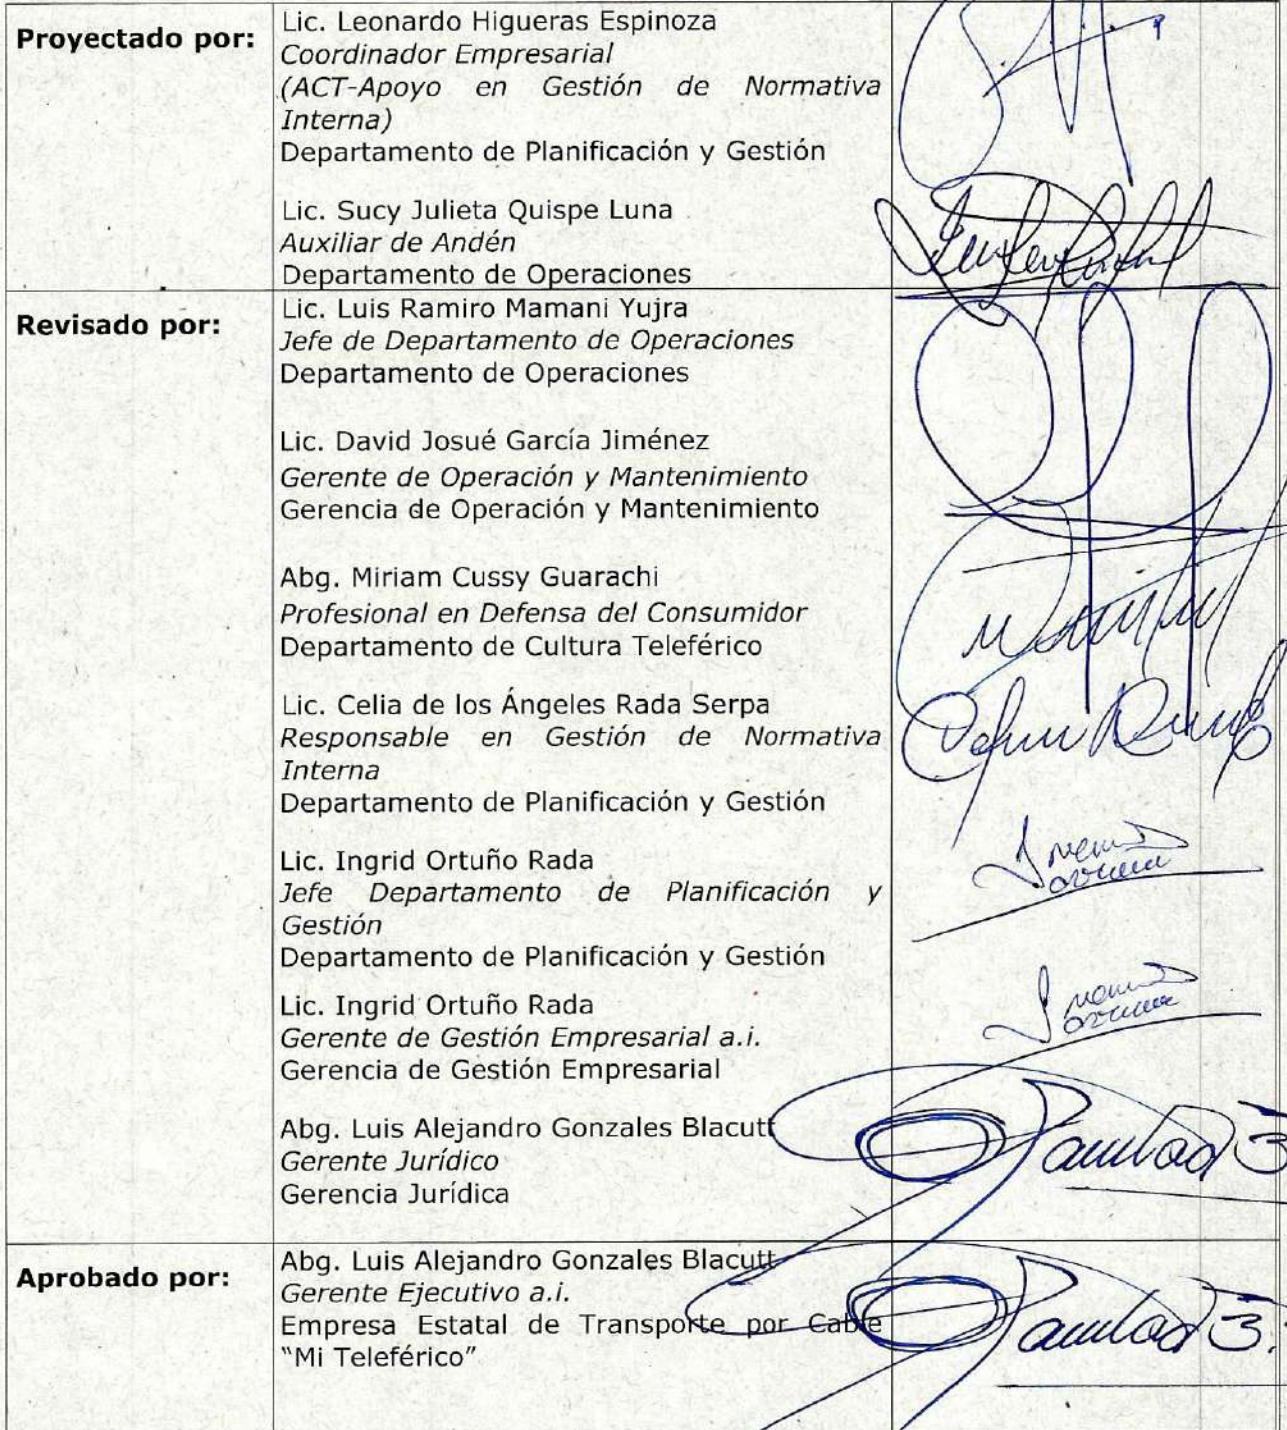 Proyectado por:
Lic. Leonardo Higueras Espinoza
Coordinador Empresarial
(ACT-Apoyo en Gestión de Normativa
Interna)
Departamento de Planificación y Gestión
Lic. Sucy Julieta Quispe Luna
Auxiliar de Andén
Departamento de Operaciones
Revisado por:
Lic. Luis Ramiro Mamani Yujra
Jefe de Departamento de Operaciones
Departamento de Operaciones
Lic. David Josué García Jiménez
Gerente de Operación y Mantenimiento
Gerencia de Operación y Mantenimiento
Abg. Miriam Cussy Guarachi
Profesional en Defensa del Consumidor
Departamento de Cultura Teleférico
Lic. Celia de los Ángeles Rada Serpa
Responsable en Gestión de Normativa
Interna
Departamento de Planificación y Gestión
Lic. Ingrid Ortuño Rada
Jefe Departamento de Planificación y
Gestión
Departamento de Planificación y Gestión
Lic. Ingrid Ortuño Rada
Gerente de Gestión Empresarial a.i.
Gerencia de Gestión Empresarial
Abg. Luis Alejandro Gonzales Blacutt
Gerente Jurídico
Gerencia Jurídica
Aprobado por:
Abg. Luis Alejandro Gonzales Blacutt
Gerente Ejecutivo a.i.
Empresa Estatal de Transporte por Cable
"Mi Teleférico"